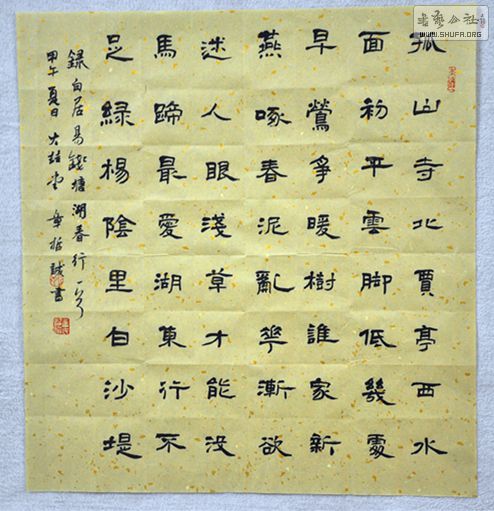 書藝公社
WWW.SHUFA.ORG
孤山寺北賈亭西水
面初平雲脚低幾處
早鶯爭暖樹誰家新
燕啄春泥亂華漸欲
迷人眼淺草才能沒
馬蹄最愛湖東行不
足綠楊陰里白沙堤
録白居易錢塘湖春行一首
甲午夏日 大堂 章誠書